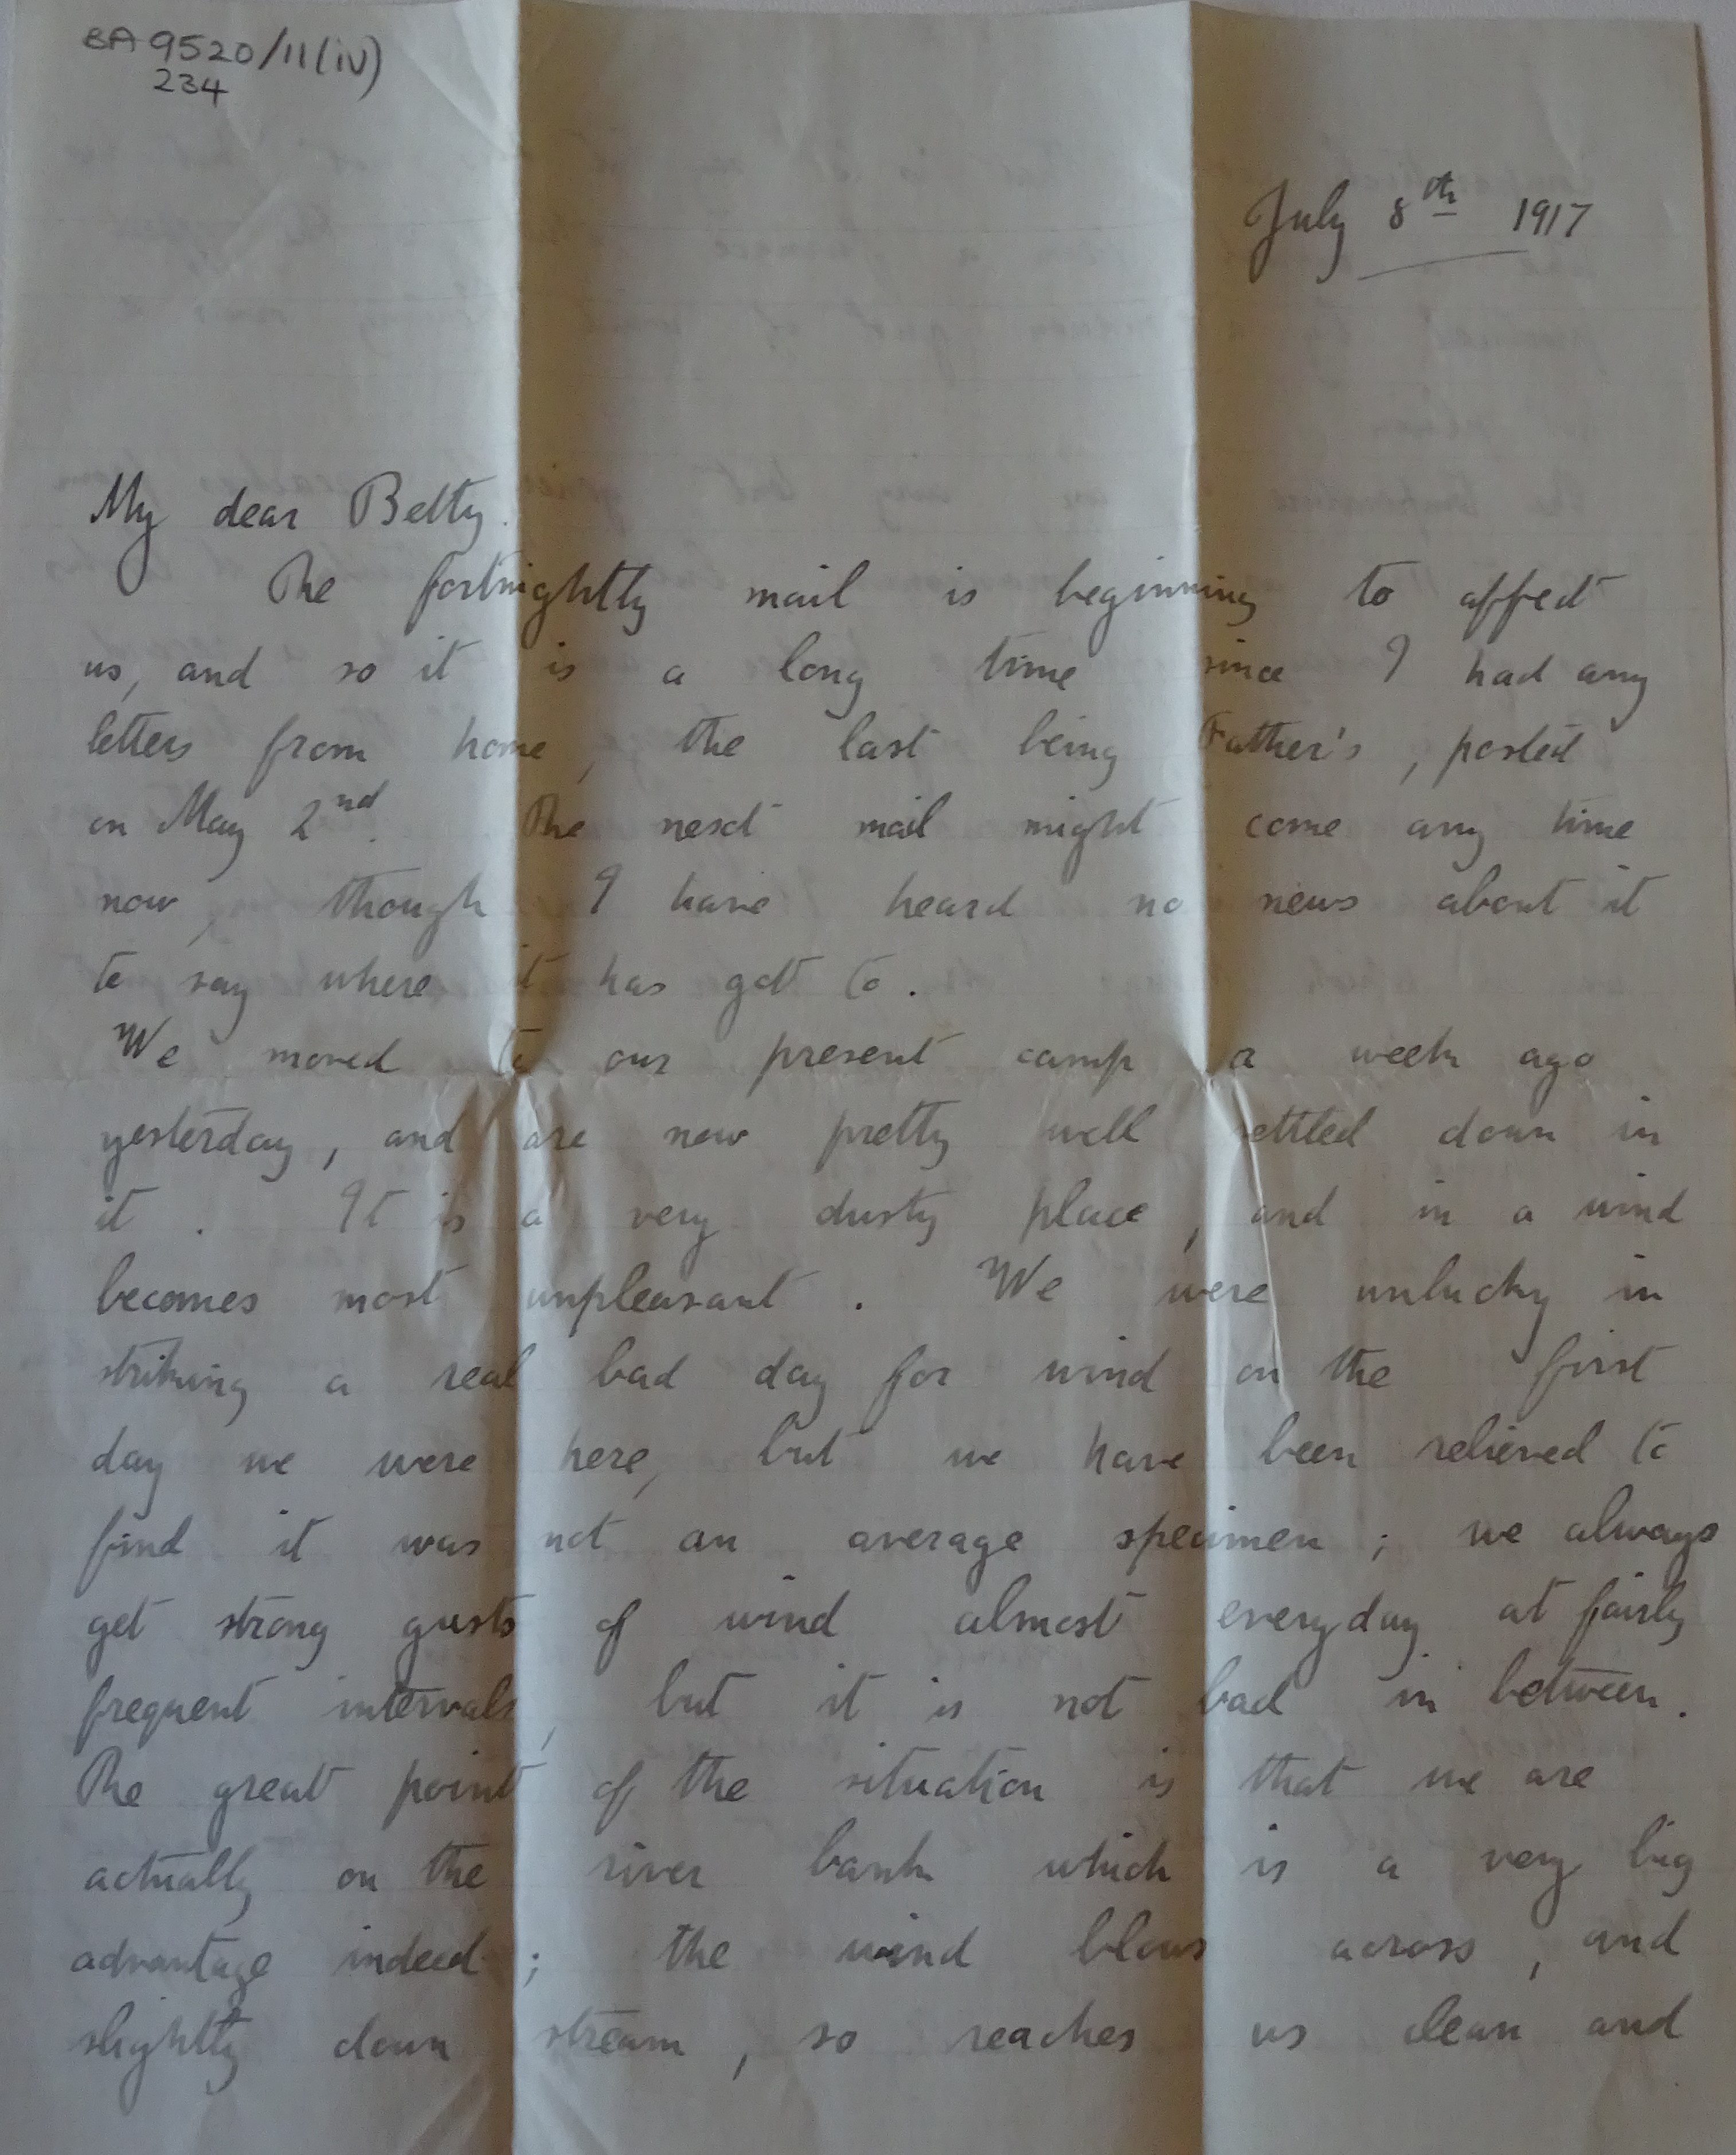 BA 9520/11(iv)
234
July 8th 1917
My dear Betty.
The fortnightly mail is beginning to affect
us, and so it is a long time since I had any
letters from home, the last being Father's, posted
on May 2nd. The next mail might come any time
now, though I have heard no news about it
to say where it has got to.
We moved to our present camp a week ago
yesterday, and are now pretty well settled down in
it. It is a very dusty place, and in a wind
becomes most unpleasant. We were unlucky in
striking a real bad day for wind on the first
day we were here, but we have been relieved to
find it was not an average specimen; we always
get strong gusts of wind almost everyday at fairly
frequent intervals, but it is not bad in between.
The great point of the situation is that we are
actually on the river bank which is a very big
advantage indeed; the wind blows across, and
slightly down stream, so reaches us clean and